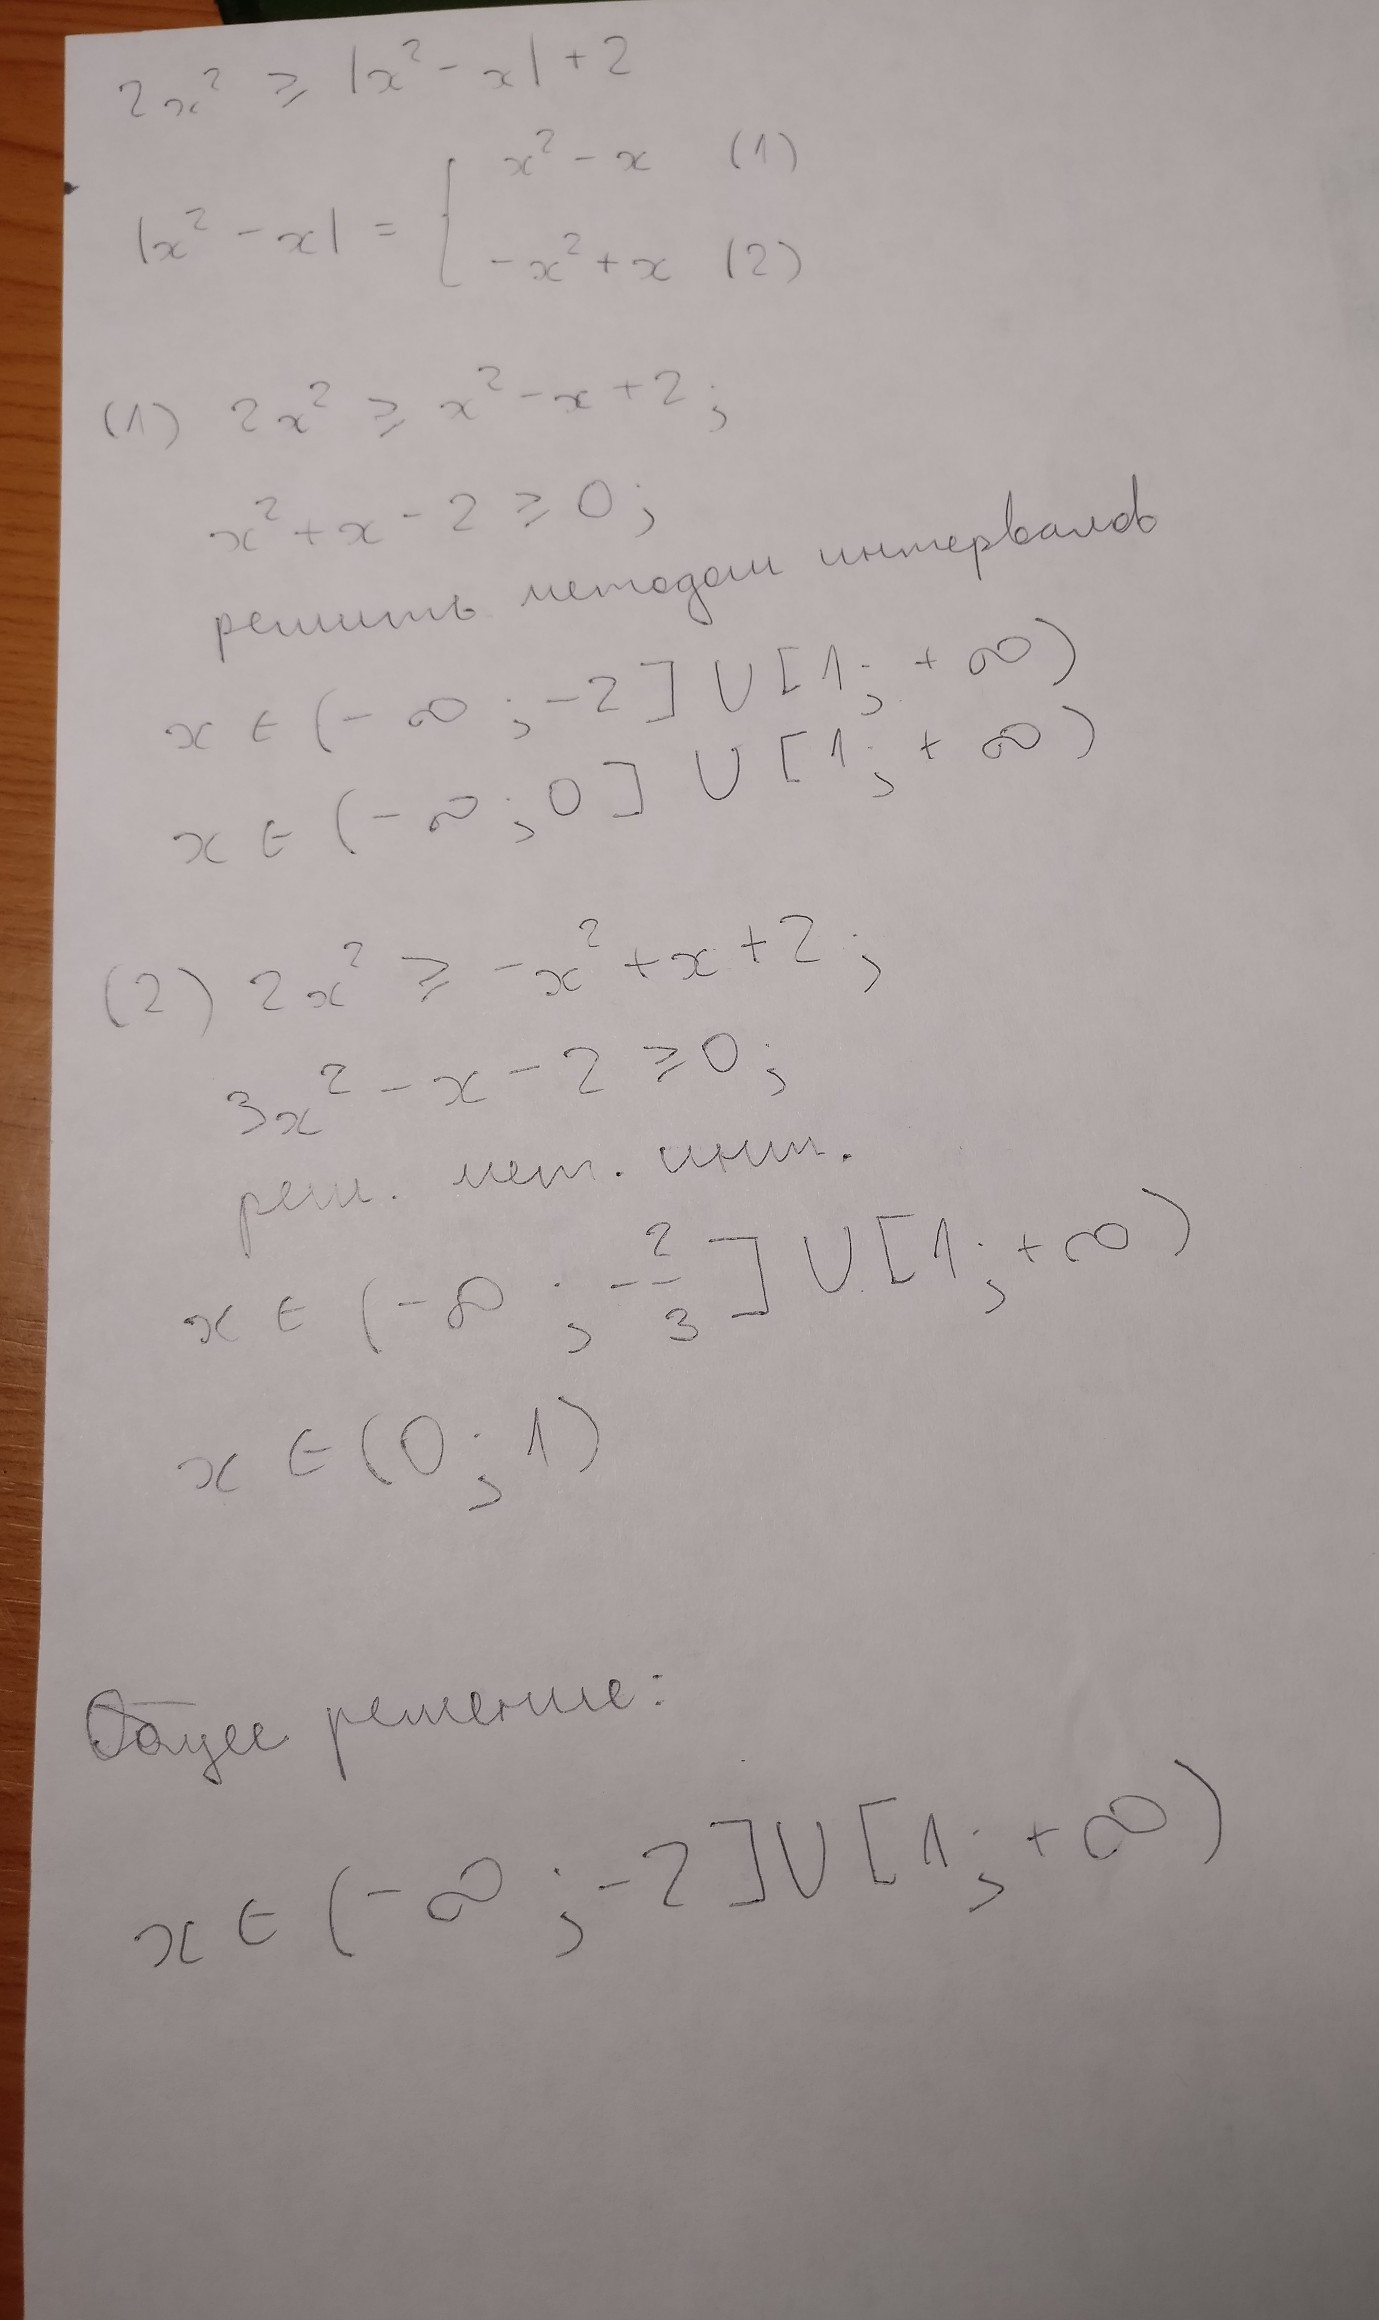 2x² ≥ |x² - x| + 2
x² - x (1)
|x² - x| = {
-x² + x (2)
(1) 2x² ≥ x² - x + 2;
x² + x - 2 ≥ 0;
решить методом интервалов
x ∈ (-∞; -2] ∪ [1; +∞)
x ∈ (-∞; 0] ∪ [1; +∞)
(2) 2x² ≥ -x² + x + 2;
3x² - x - 2 ≥ 0;
реш. мет. инт.
x ∈ (-∞; -2/3] ∪ [1; +∞)
x ∈ (0; 1)
Общее решение:
x ∈ (-∞; -2] ∪ [1; +∞)